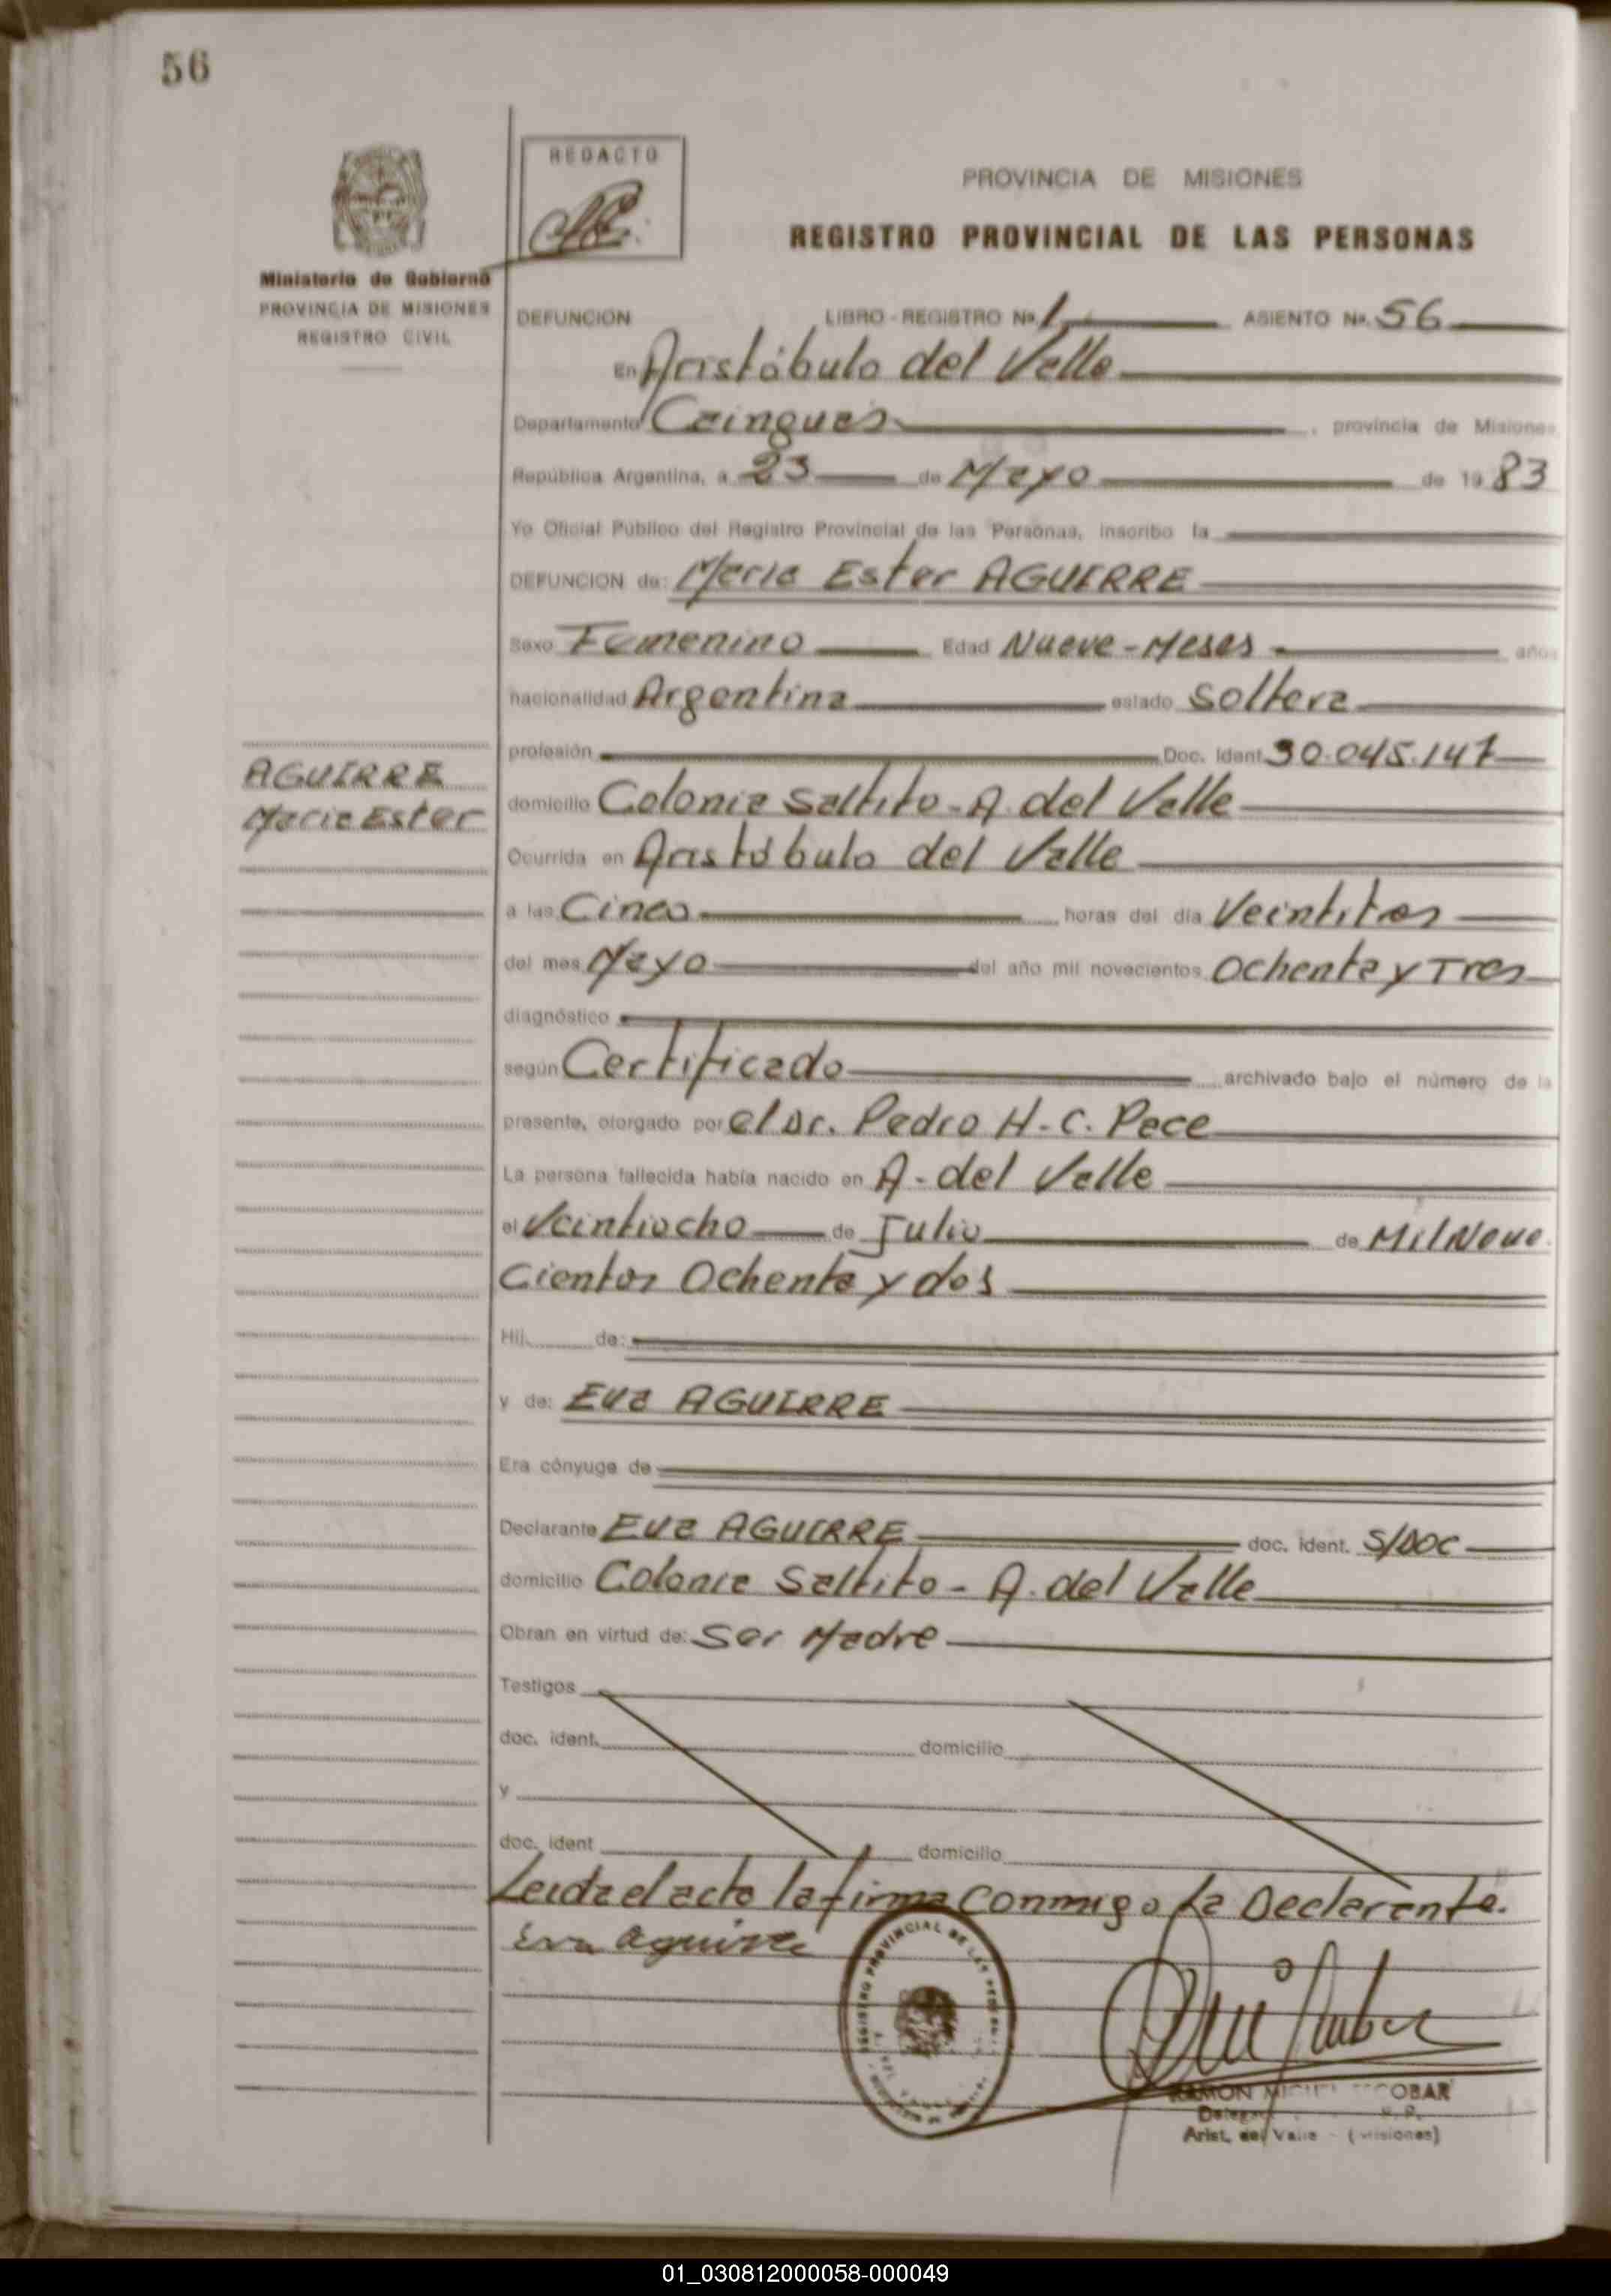 56
REDACTO
PROVINCIA DE MISIONES
REGISTRO PROVINCIAL DE LAS PERSONAS
Ministerio de Gobierno
PROVINCIA DE MISIONES
REGISTRO CIVIL
DEFUNCION LIBRO - REGISTRO Nº 1 ASIENTO Nº 56
En Aristóbulo del Valle
Departamento Cainguas, provincia de Misiones
República Argentina, a 23 de Mayo de 1983
Yo Oficial Público del Registro Provincial de las Personas, inscribo la
DEFUNCION de: Maria Ester AGUIRRE
Sexo Femenino Edad Nueve-Meses años
nacionalidad Argentina estado Soltera
profesión Doc. Ident. 30.045.147
AGUIRRE
Maria Ester
domicilio Colonia Saltito - A. del Valle
Ocurrida en Aristóbulo del Valle
a las Cinco horas del día Veintitres
del mes Mayo del año mil novecientos Ochenta y Tres
diagnóstico
según Certificado archivado bajo el número de la
presente, otorgado por el Dr. Pedro H. C. Pece
La persona fallecida había nacido en A. del Valle
el Veintiocho de Julio de Mil Nove
Cientos Ochenta y dos
Hij de:
y de: Eva AGUIRRE
Era cónyuge de
Declarante Eva AGUIRRE doc. ident. S/DOC
domicilio Colonia Saltito - A. del Valle
Obran en virtud de: Ser Madre
Testigos
doc. ident. domicilio
y
doc. ident domicilio
Leida el acta la firma Conmigo la Declarante.
Eva Aguirre
REGISTRO PROVINCIAL DE LAS PERSONAS
RAMON MIGUEL ESCOBAR
Arist. del Valle - (Misiones)
01_030812000058-000049